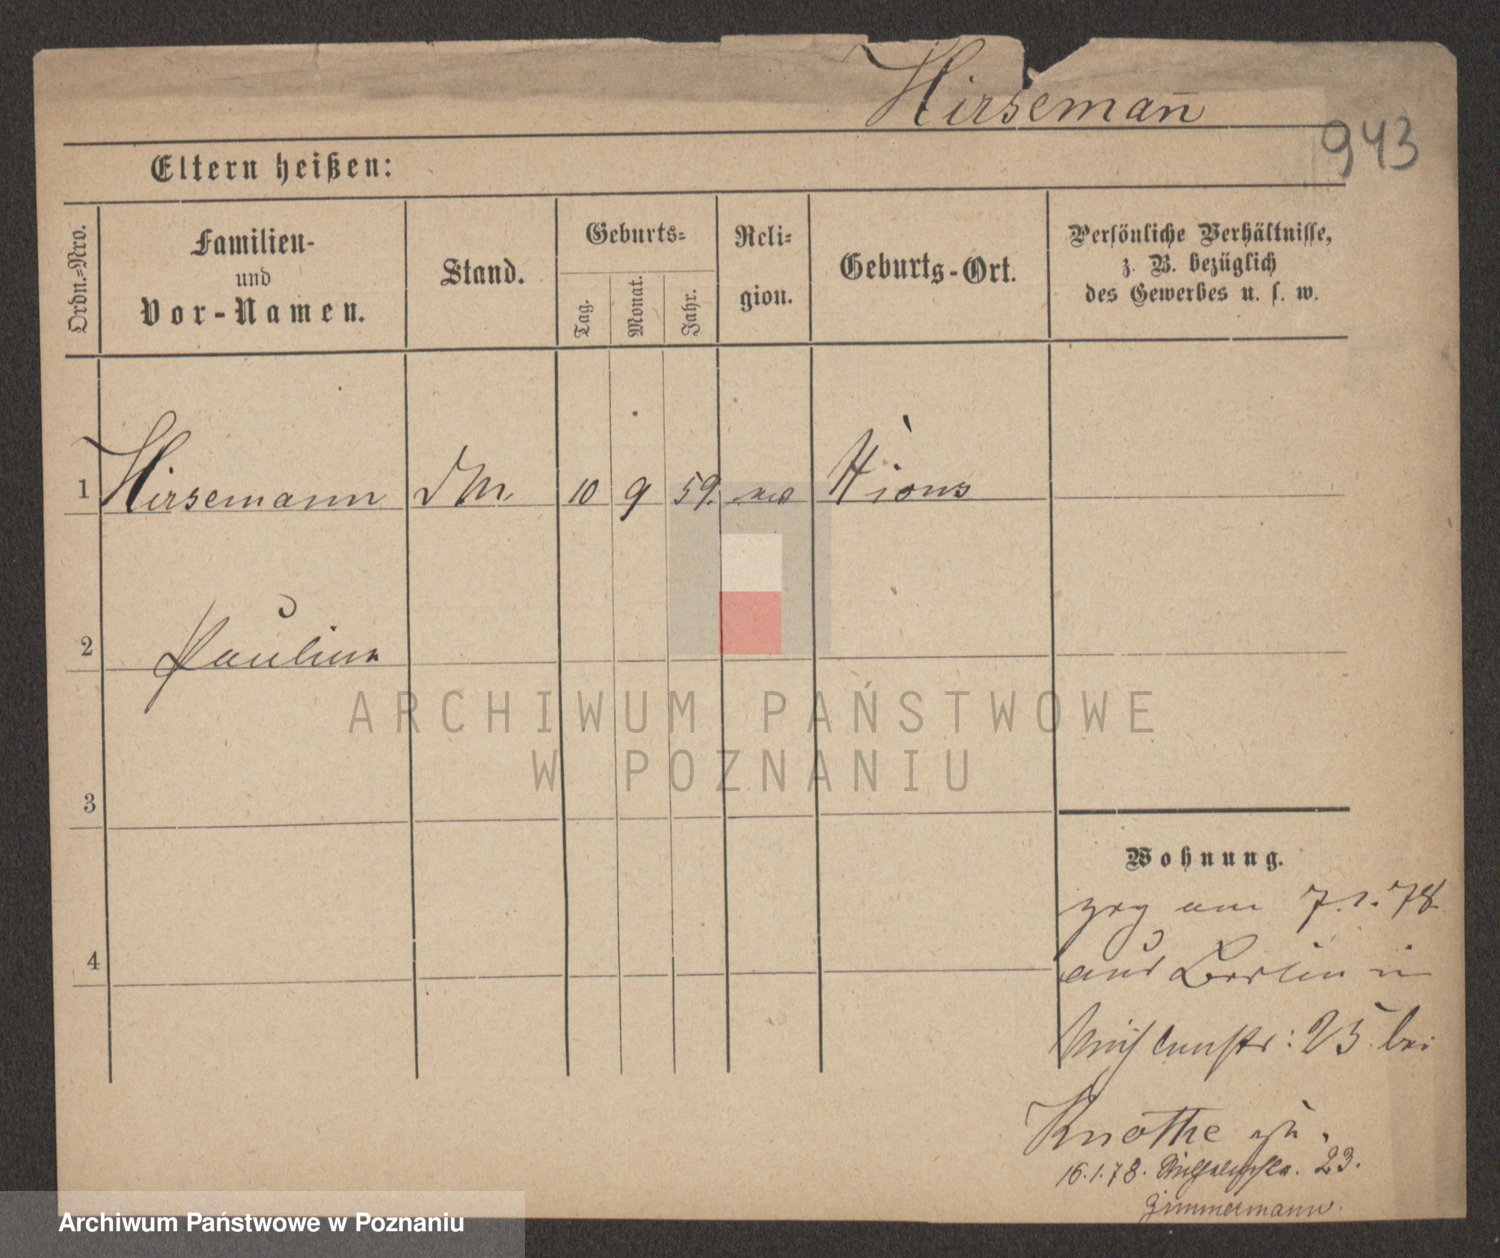 Hirsemañ
943
Eltern heißen:
Ordn.=Nro.
Familien-
und
Vor-Namen.
Stand.
Geburts=
Tag.
Monat.
Jahr.
Reli=
gion.
Geburts-Ort.
Persönliche Verhältnisse,
z. B. bezüglich
des Gewerbes u. s. w.
1 Hirsemann 10 9 59. Xions
2 Pauline
3
4
ARCHIWUM PAŃSTWOWE
W POZNANIU
Wohnung.
zog am 7.1.78
aus Berlin in
25 bei
Knothe zu.
16.1.78. 23.
Zimmermann.
Archiwum Państwowe w Poznaniu